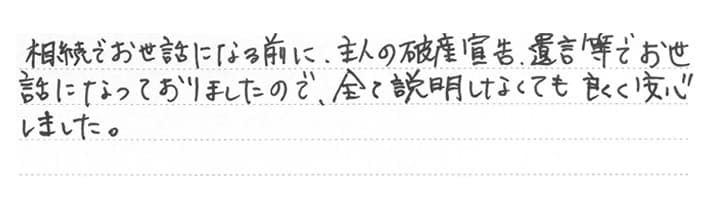 相続でお世話になる前に、主人の破産宣告、遺言等でお世
話になっておりましたので、全て説明しなくても良くて安心
しました。